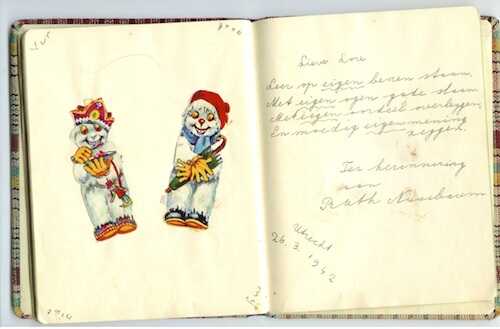 Lieve Lore
Leer op eigen benen staan,
Met eigen ogen gade slaan
Met eigen oordeel overleggen,
En moedig eigen mening
zeggen.
Ter herinnering
aan
Ruth Nussbaum
Utrecht
26.3.1942